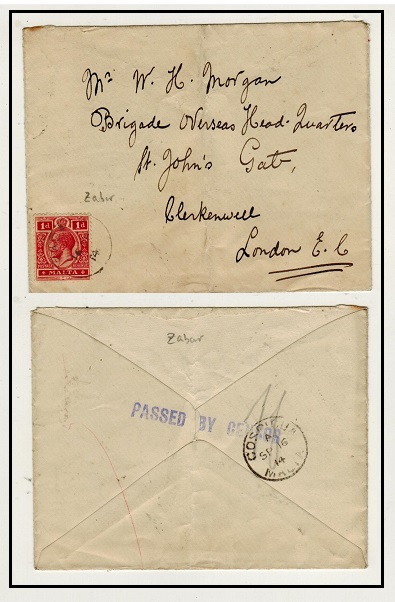 Mr W. H. Morgan
Brigade Overseas Head-Quarters
St. John's Gate,
Clerkenwell
London E. C
Zabur
1d 1d
MALTA
14
Zabur
PASSED BY CENSOR
COSPICUA
SP 16
14
MALTA